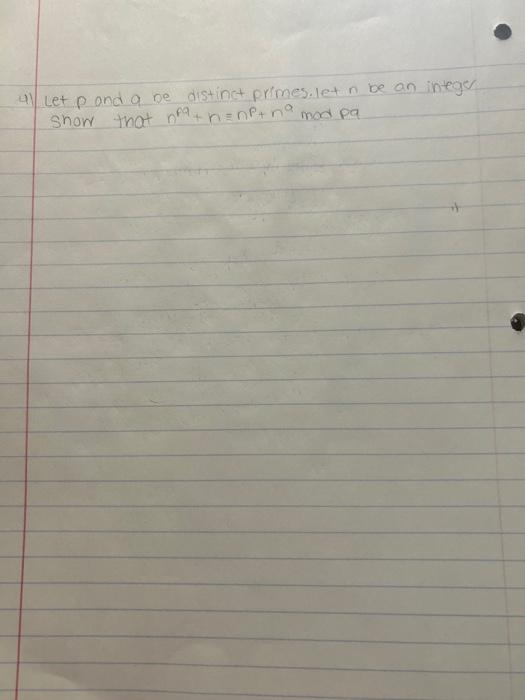 4) Let p and q be distinct primes. let n be an integer
show that n^pq + n ≡ n^p + n^q mod pq